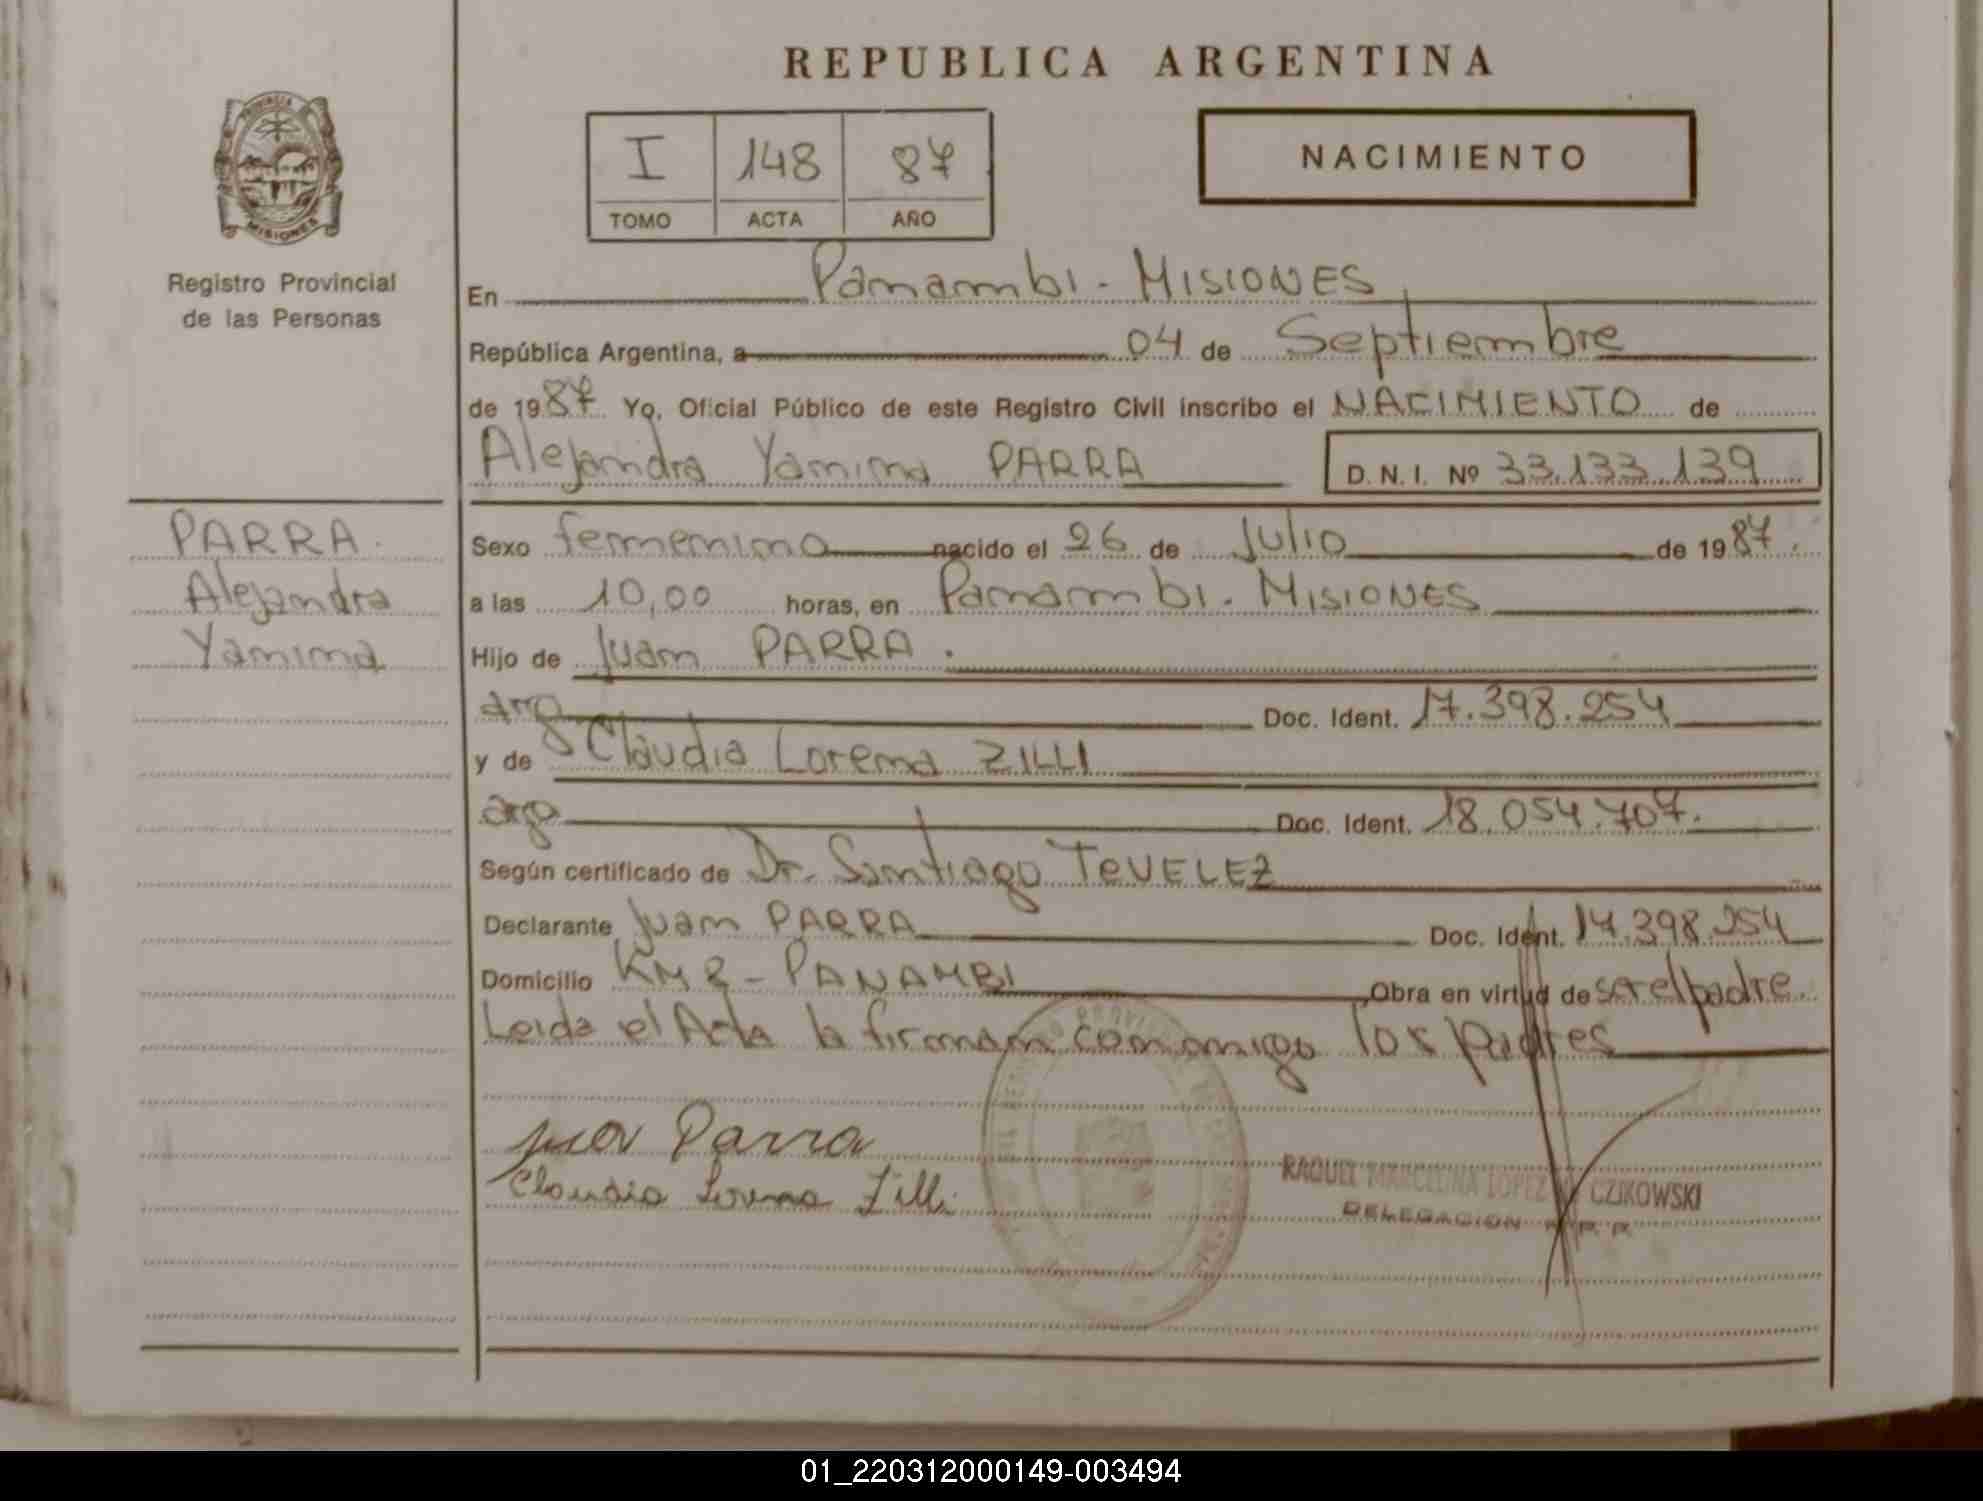 REPUBLICA ARGENTINA
PROVINCIA
MISIONES
Registro Provincial
de las Personas
I 148 87
TOMO ACTA AÑO
NACIMIENTO
En Panambi - MISIONES
República Argentina, a 04 de Septiembre
de 1987 Yo, Oficial Público de este Registro Civil inscribo el NACIMIENTO de
Alejandra Yanina PARRA D. N. I. Nº 33.133.139
PARRA.
Alejandra
Yanina
Sexo femenino nacido el 26 de Julio de 1987.
a las 10,00 horas, en Panambi. MISIONES
Hijo de Juan PARRA.
arg Doc. Ident. 17.398.254
y de Claudia Lorena ZILLI
arg Doc. Ident. 18.054.707.
Según certificado de Dr. Santiago TEVELEZ
Declarante Juan PARRA Doc. Ident. 17.398.254
Domicilio KM 2 - PANAMBI Obra en virtud de ser el padre.
Leida el Acta la firman conmigo los padres
Juan Parra
Claudia Lorena Zilli
RAQUEL MARCELINA LOPEZ CZIKOWSKI
DELEGACION R. P. P.
01_220312000149-003494